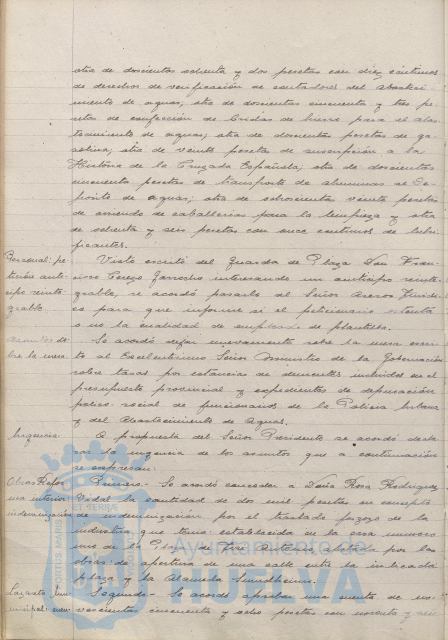 otra de doscientos ochenta y dos pesetas con diez céntimos
de derechos de verificación de contadores del Abasteci
miento de aguas; otra de doscientos cincuenta y tres pe
setas de confección de bridas de hierro para el abas
tecimiento de aguas; otra de doscientas pesetas de ga
solina; otra de veinte pesetas de suscripción a la
Historia de la Cruzada Española; otra de doscientos
cincuenta pesetas de transporte de al De
pósito de aguas; otra de ochocientas veinte pesetas
de arriendo de caballerías para la limpieza y otra
de ochenta y seis pesetas con once céntimos de lubri
ficantes.
Personal: pe
tición anti-
cipo reinte-
grable
Visto escrito del Guarda de Plaza Don Fran
cisco Perezo Garrocho interesando un anticipo reinte
grable, se acordó pasarlo al Señor Asesor Jurídi
co para que informe si el peticionario ostenta
o no la cualidad de empleado de plantilla.
Asuntos so-
bre la mesa
Se acordó dejar nuevamente sobre la mesa escri
to al Excelentísimo Señor Ministro de la Gobernación
sobre tasas por estancias de dementes incluidas en el
presupuesto provincial y expedientes de depuración
político social de funcionarios de la Policía Urbana
y del Abastecimiento de Aguas.
Urgencia
A propuesta del Señor Presidente se acordó decla
rar la urgencia de los asuntos que a continuación
se expresan:
Obras Refor
ma interior
indemnización
Primero.- Se acordó conceder a Doña Rosa Rodríguez
Vidal la cantidad de dos mil pesetas en concepto
de indemnización por el traslado forzoso de la
industria que tenía establecida en la casa número
uno de la Plaza de San Antonio afectada por las
obras de apertura de una calle entre la indicada
plaza y la Alameda Sundheim.
municipal: cuen
Segundo.- Se acordó aprobar una cuenta de no
vecientas cincuenta y ocho pesetas con noventa y seis
PORTUS MARIS ET TERRAE
Ayuntamiento de
HUELVA